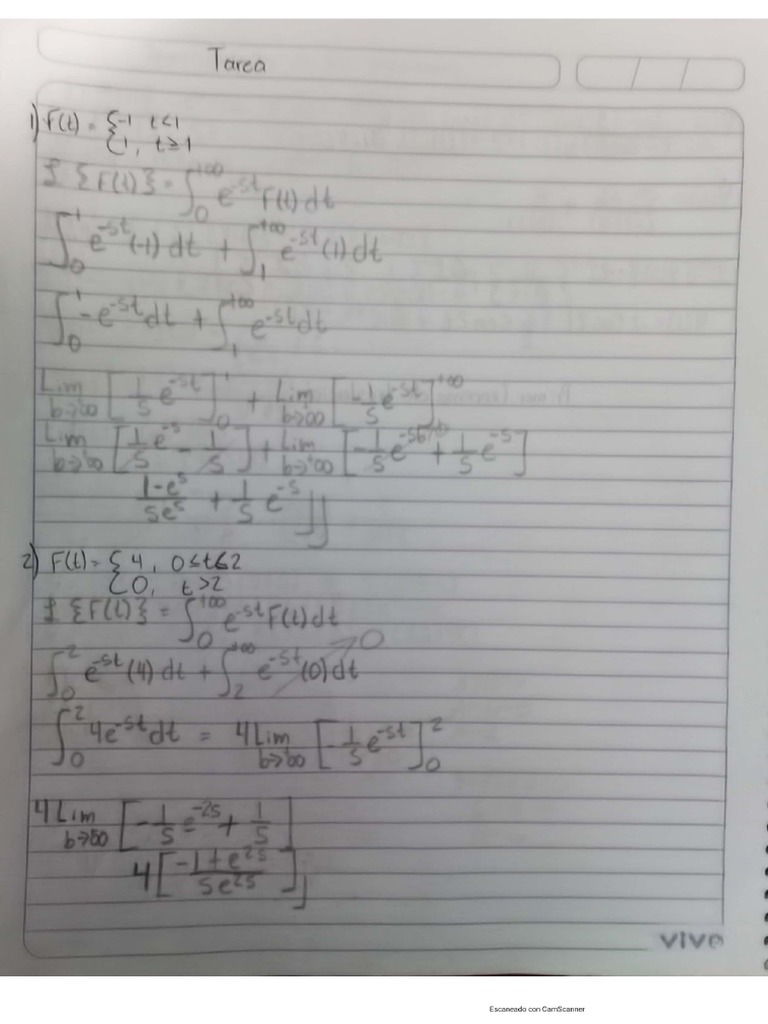 Tarea
1) F(t) = { -1 t<1
{ 1, t≥1
£ {F(t)} = ∫₀^+∞ e^-st F(t) dt
∫₀^1 e^-st (-1) dt + ∫₁^+∞ e^-st (1) dt
∫₀^1 -e^-st dt + ∫₁^+∞ e^-st dt
Lim b→∞ [1/s e^-st]₀^1 + Lim b→∞ [-1/s e^-st]₁^+∞
Lim b→∞ [1/s e^-s - 1/s] + Lim b→+∞ [-1/s e^-sb + 1/s e^-s]
1-e^s/se^s + 1/s e^-s
2) F(t) = { 4, 0≤t≤2
{ 0, t>2
£ {F(t)} = ∫₀^+∞ e^-st F(t) dt
∫₀^2 e^-st (4) dt + ∫₂^+∞ e^-st (0) dt 0
∫₀^2 4e^-st dt = 4 Lim b→∞ [-1/s e^-st]₀^2
4 Lim b→∞ [-1/s e^-2s + 1/s]
4 [-1+e^2s/se^2s]
vivo
Escaneado con CamScanner